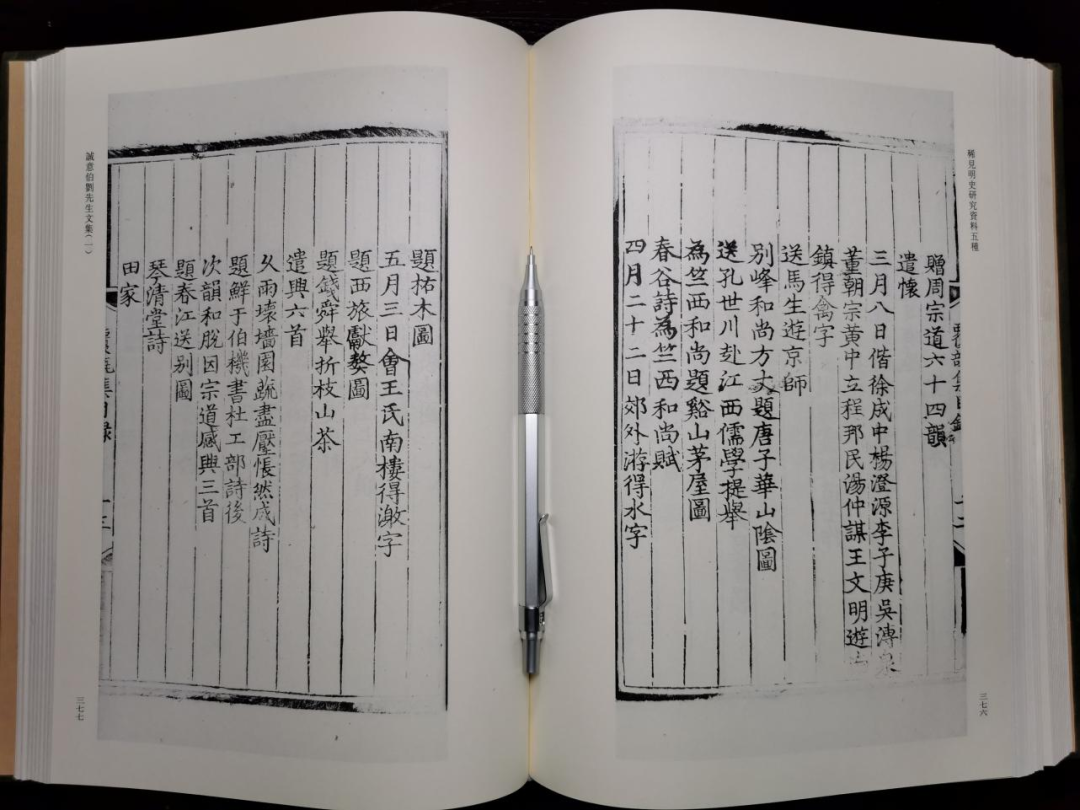 稀見明史研究資料五種
贈周宗道六十四韻
遣懷
三月八日偕徐成中楊澄源李子庚吳溥泉
董朝宗黄中立程邦民湯仲謀王文明遊
鎮得禽字
送馬生遊京師
別峰和尚方丈題唐子華山陰圖
送孔世川赴江西儒學提舉
為竺西和尚題谿山茅屋圖
春谷詩為竺西和尚賦
四月二十二日郊外游得水字
三七六
題枯木圖
五月三日會王氏南樓得激字
題西旅獻獒圖
題錢舜舉折枝山茶
遣興六首
久雨壞墻園蔬盡壓悵然成詩
題鮮于伯機書杜工部詩後
次韻和脫因宗道感興三首
題春江送别圖
琴清堂詩
田家
誠意伯劉先生文集(一)
三七七